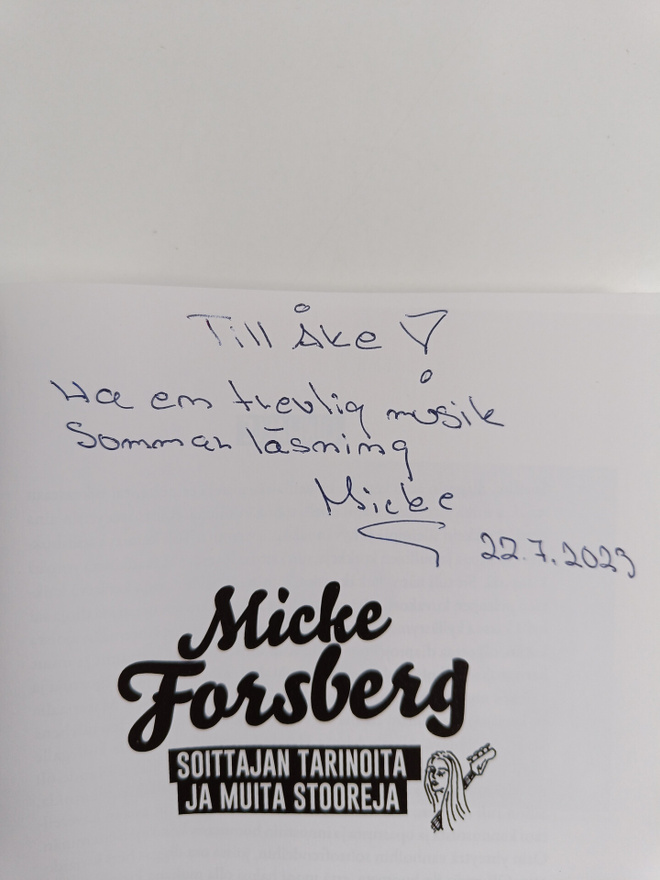 Till Åke
Ha en trevlig musik
Sommar läsning
Micke
22.7.2023
Micke
Forsberg
SOITTAJAN TARINOITA
JA MUITA STOOREJA